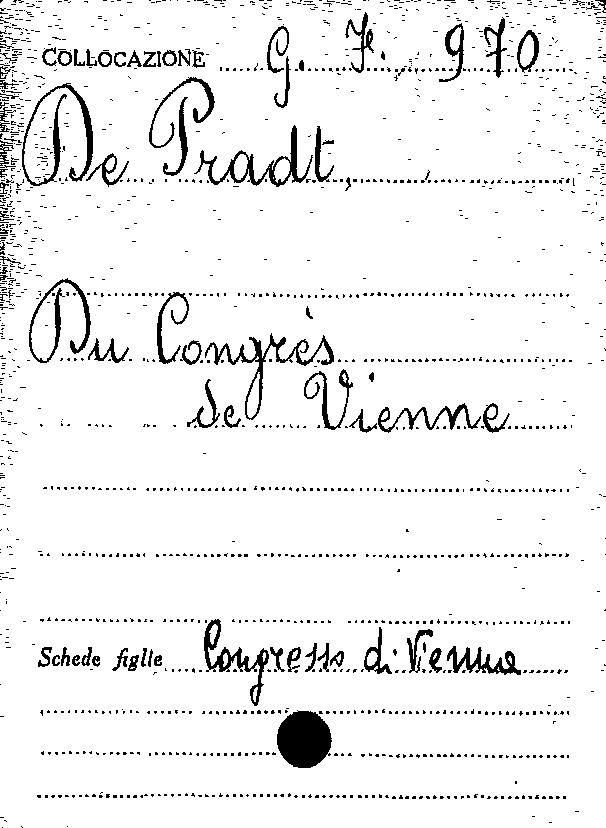 COLLOCAZIONE G. F. 970
De Pradt,
Du Congrès
de Vienne
Schede figlie Congresso di Vienna